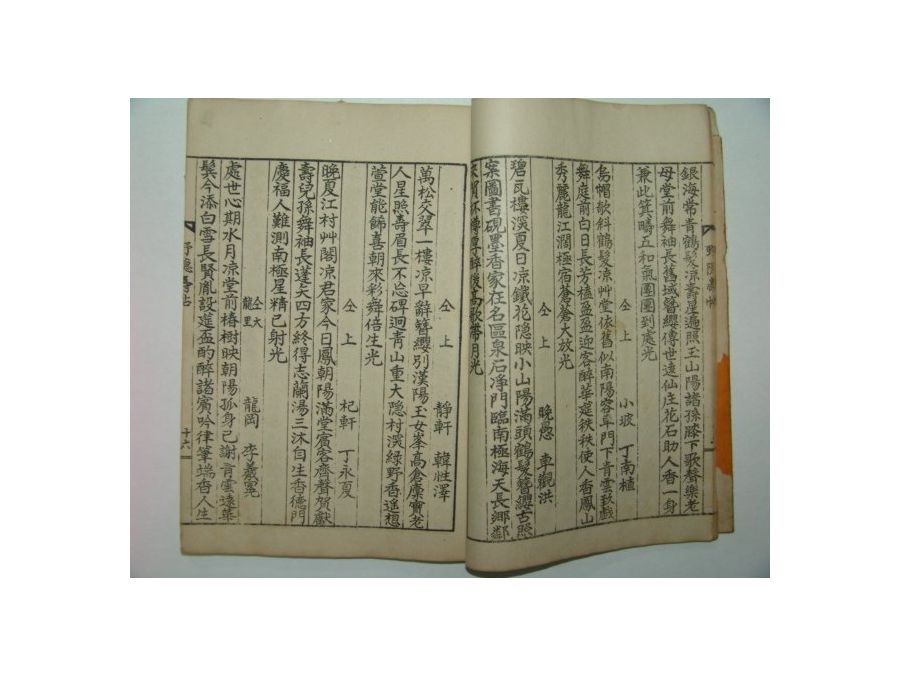 銀海常青鶴髮凉壽星遍照玉山陽諸孫膝下歌聲樂老
母堂前舞袖長舊域簪纓傳世遠仙庄花石助人香一身
兼此箕疇五和氣團團到處光
仝上 小坡 丁南植
烏帽欹斜鶴髮凉艸堂依舊似南陽客耳門下青雲致戲
舞庭前白日長芳樽盈盈迎客醉華筵秩秩使人香鳳山
秀麗龍江濶極宿蒼蒼大放光
仝上 晚愚 車觀洪
碧瓦樓深夏日凉鐵花隱映小山陽滿頭鶴髮簪纓古照
案圖書硯墨香家在名區泉石净門臨南極海天長鄉鄰
醉後高歌帶月光
仝上 靜軒 韓性澤
萬松交翠一樓凉早辭簪纓別漢陽玉女峯高倉廩實老
人星照壽眉長不忘碑迴青山重大隱村深綠野香遙想
萱堂能餙喜朝來彩舞倍生光
仝上 杞軒 丁永夏
晚夏江村艸閣凉君家今日鳳朝陽滿堂賓客齊聲賀獻
壽兒孫舞袖長蓬矢四方終得志蘭湯三沐自生香德門
慶福人難測南極星精已射光
仝大 龍里 龍岡 李羲冕
處世心期水月凉堂前椿樹映朝陽孤身已謝青雲遠葉
鬂今添白雪長賢胤設筵盃酌醉諸賓吟律筆端香人生
野隱壽帖
十六